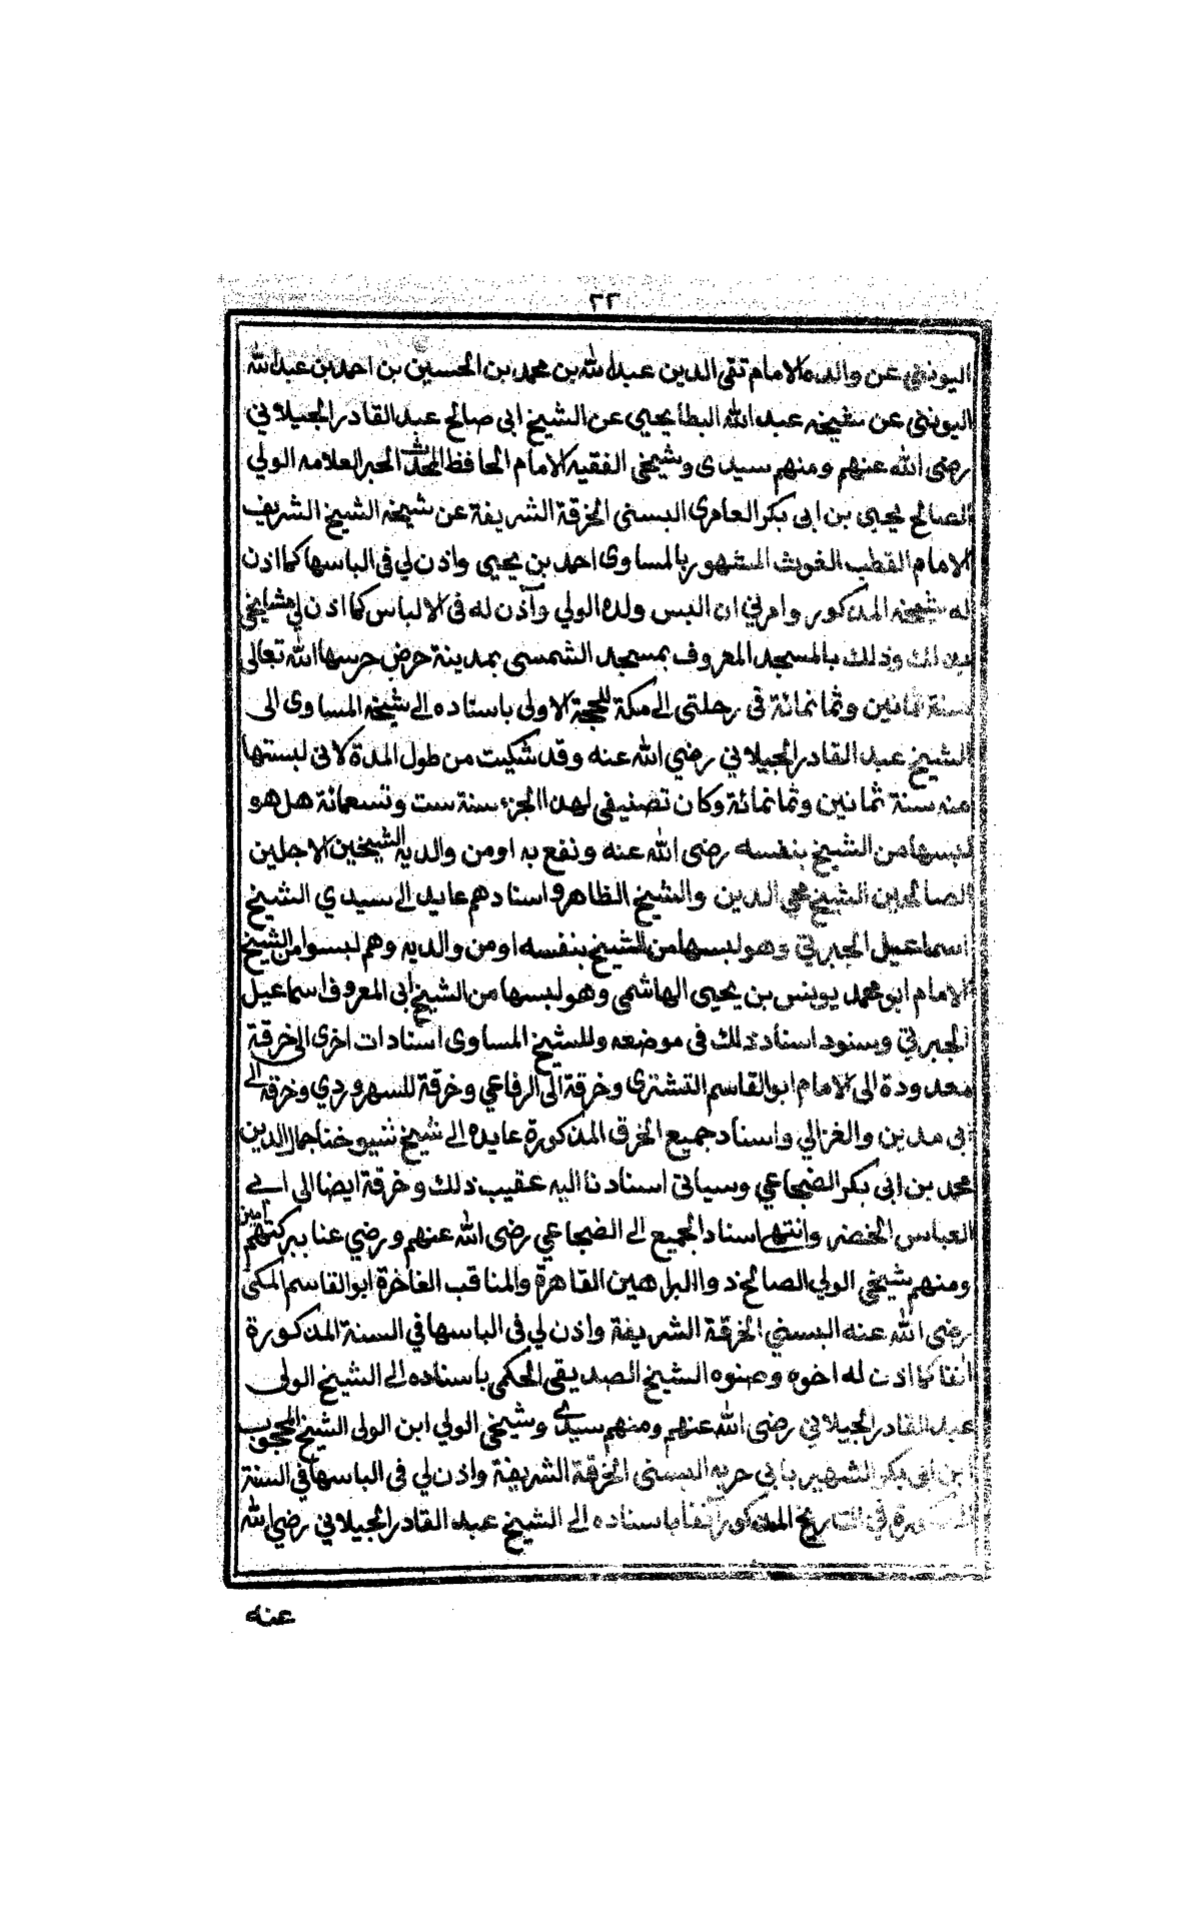 ٢٢
اليونيني عن والده الامام تقي الدين عبد الله بن محمد بن الحسين بن احمد بن عبد الله
اليونيني عن شيخه عبد الله البطايحي عن الشيخ ابى صالح عبد القادر الجيلاني
رضى الله عنهم ومنهم سيدى وشيخى الفقيه الامام الحافظ المحدث الحبر العلامه الولي
الصالح يحيى بن ابى بكر العامرى البسنى الخرقة الشريفة عن شيخه الشيخ الشريف
الامام القطب الغوث المشهور بالمساوى احمد بن يحيى واذن لي فى الباسها كما اذن
له شيخه المذكور وامرني ان البس ولده الولي وآذن له فى الالباس كما اذن لي مشايخى
بذلك وذلك بالمسجد المعروف بمسجد الشمسى بمدينة حرض حرسها الله تعالى
سنة ثمانين وثمانمائة فى رحلتى الى مكة للحجة الاولى باسناده الى شيخه المساوى الى
الشيخ عبد القادر الجيلاني رضي الله عنه وقد شكيت من طول المدة لانى لبستها
منه سنة ثمانين وثمانمائة وكان تصنيفى لهذا الجزء سنة ست وتسعمائة هل هو
لبسها من الشيخ بنفسه رضى الله عنه ونفع به او من والديه الشيخين الاجلين
الصالحين الشيخ محي الدين والشيخ الظاهر واسنادهم عايد الى سيدي الشيخ
اسماعيل الجبرتي وهو لبسها من الشيخ بنفسه او من والديه وهم لبسوا من الشيخ
الامام ابو محمد يونس بن يحيى الهاشمى وهو لبسها من الشيخ ابى المعروف اسماعيل
الجبرتي وسنود اسناد ذلك فى موضعه وللشيخ المساوى اسنادات اخرى الى خرقة
معدودة الى الامام ابو القاسم التشترى وخرقة الى الرفاعي وخرقة للسهروردي وخرقة الى
ابى مدين والغزالي واسناد جميع الخرق المذكورة عايده الى شيخ شيوخنا جمال الدين
محمد بن ابى بكر الضجاعي وسياتى اسنادنا اليه عقيب ذلك وخرقة ايضا الى ابى
العباس الخضر وانتهى اسناد الجميع الى الضجاعي رضى الله عنهم ورضي عنا ببركتهم امين
ومنهم شيخي الولي الصالح ذو البراهين القاهرة والمناقب الفاخرة ابو القاسم المكى
رضى الله عنه البسني الخرقة الشريفة واذن لي فى الباسها في السنة المذكورة
انفا كما اذن له اخوه وصنوه الشيخ الصديقى الحكمى باسناده الى الشيخ الولى
عبد القادر الجيلاني رضى الله عنهم ومنهم سيدى وشيخى الولي ابن الولى الشيخ المحجوب
ابن ابى بكر الشهير بابي حربه البسنى الخرقة الشريفة واذن لي فى الباسها في السنة
المذكورة في التاريخ المذكور آنفا باسناده الى الشيخ عبد القادر الجيلاني رضي الله
عنه